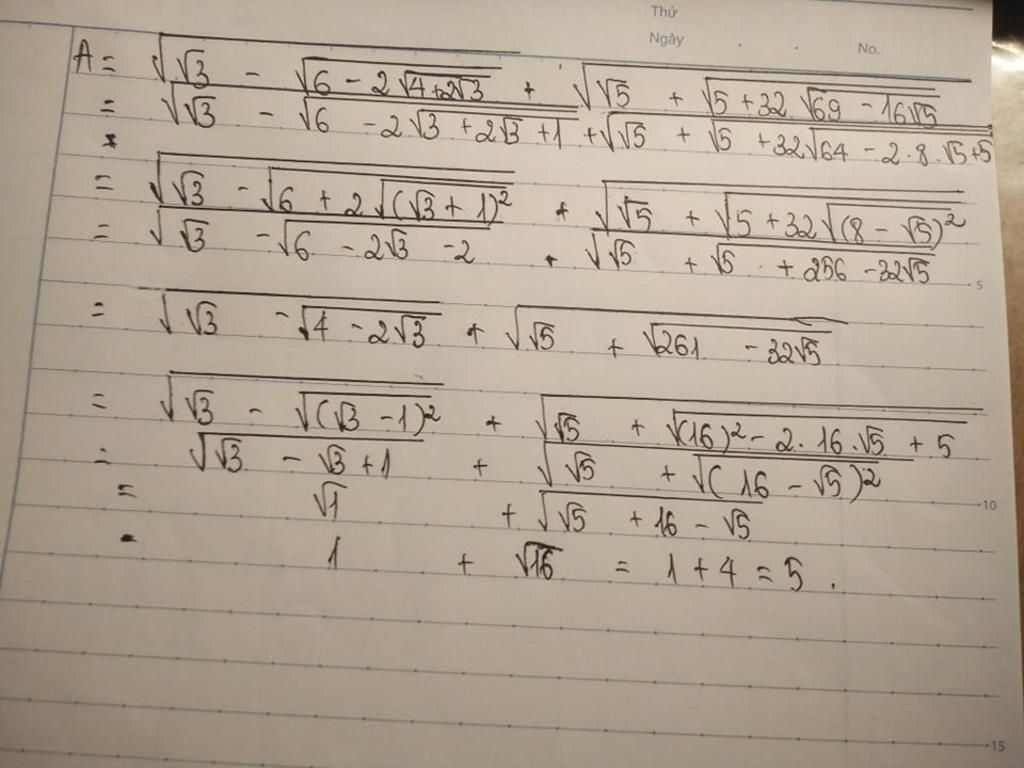 Thứ
Ngày . . No.
A = √(√3 - √(6 - 2√(4+2√3))) + √(√5 + √(5 + 32√(69 - 16√5)))
= √(√3 - √(6 - 2√(3 + 2√3 + 1))) + √(√5 + √(5 + 32√(64 - 2.8.√5+5)))
= √(√3 - √(6 + 2√((√3 + 1)²))) + √(√5 + √(5 + 32√((8 - √5)²)))
= √(√3 - √(6 - 2√3 - 2)) + √(√5 + √(5 + 256 - 32√5))
5
= √(√3 - √(4 - 2√3)) + √(√5 + √(261 - 32√5))
= √(√3 - √((√3 - 1)²)) + √(√5 + √((16)² - 2.16.√5 + 5))
= √(√3 - √3 + 1) + √(√5 + √((16 - √5)²))
= √1 + √(√5 + 16 - √5)
10
= 1 + √16 = 1 + 4 = 5 .
15